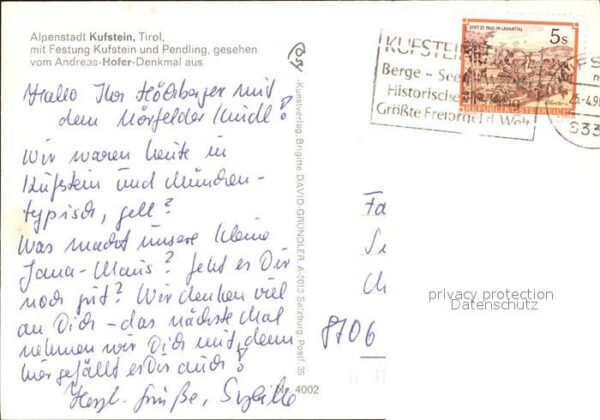 Alpenstadt Kufstein, Tirol,
mit Festung Kufstein und Pendling, gesehen
vom Andreas-Hofer-Denkmal aus
Hallo Ihr
mit
dem
Wir waren heute in
Kufstein und München-
typisch, gell?
Was macht unsere kleine
Jana-Maus? Geht es Dir
noch gut? Wir denken viel
an Dich - das nächste Mal
nehmen wir Dich mit, denn
hier gefällt es Dir auch!
Herzl. Grüße, Sybille
Kunstverlag Brigitte DAVID-GRÜNDLER, A-5013 Salzburg, Postf. 35
4002
KUFSTEIN
Berge - See
Historische
Größte Freiorgel d. Welt
STIFT ST. PAUL IM LAVANTTAL
5s
REPUBLIK ÖSTERREICH
Fa
8706
privacy protection
Datenschutz